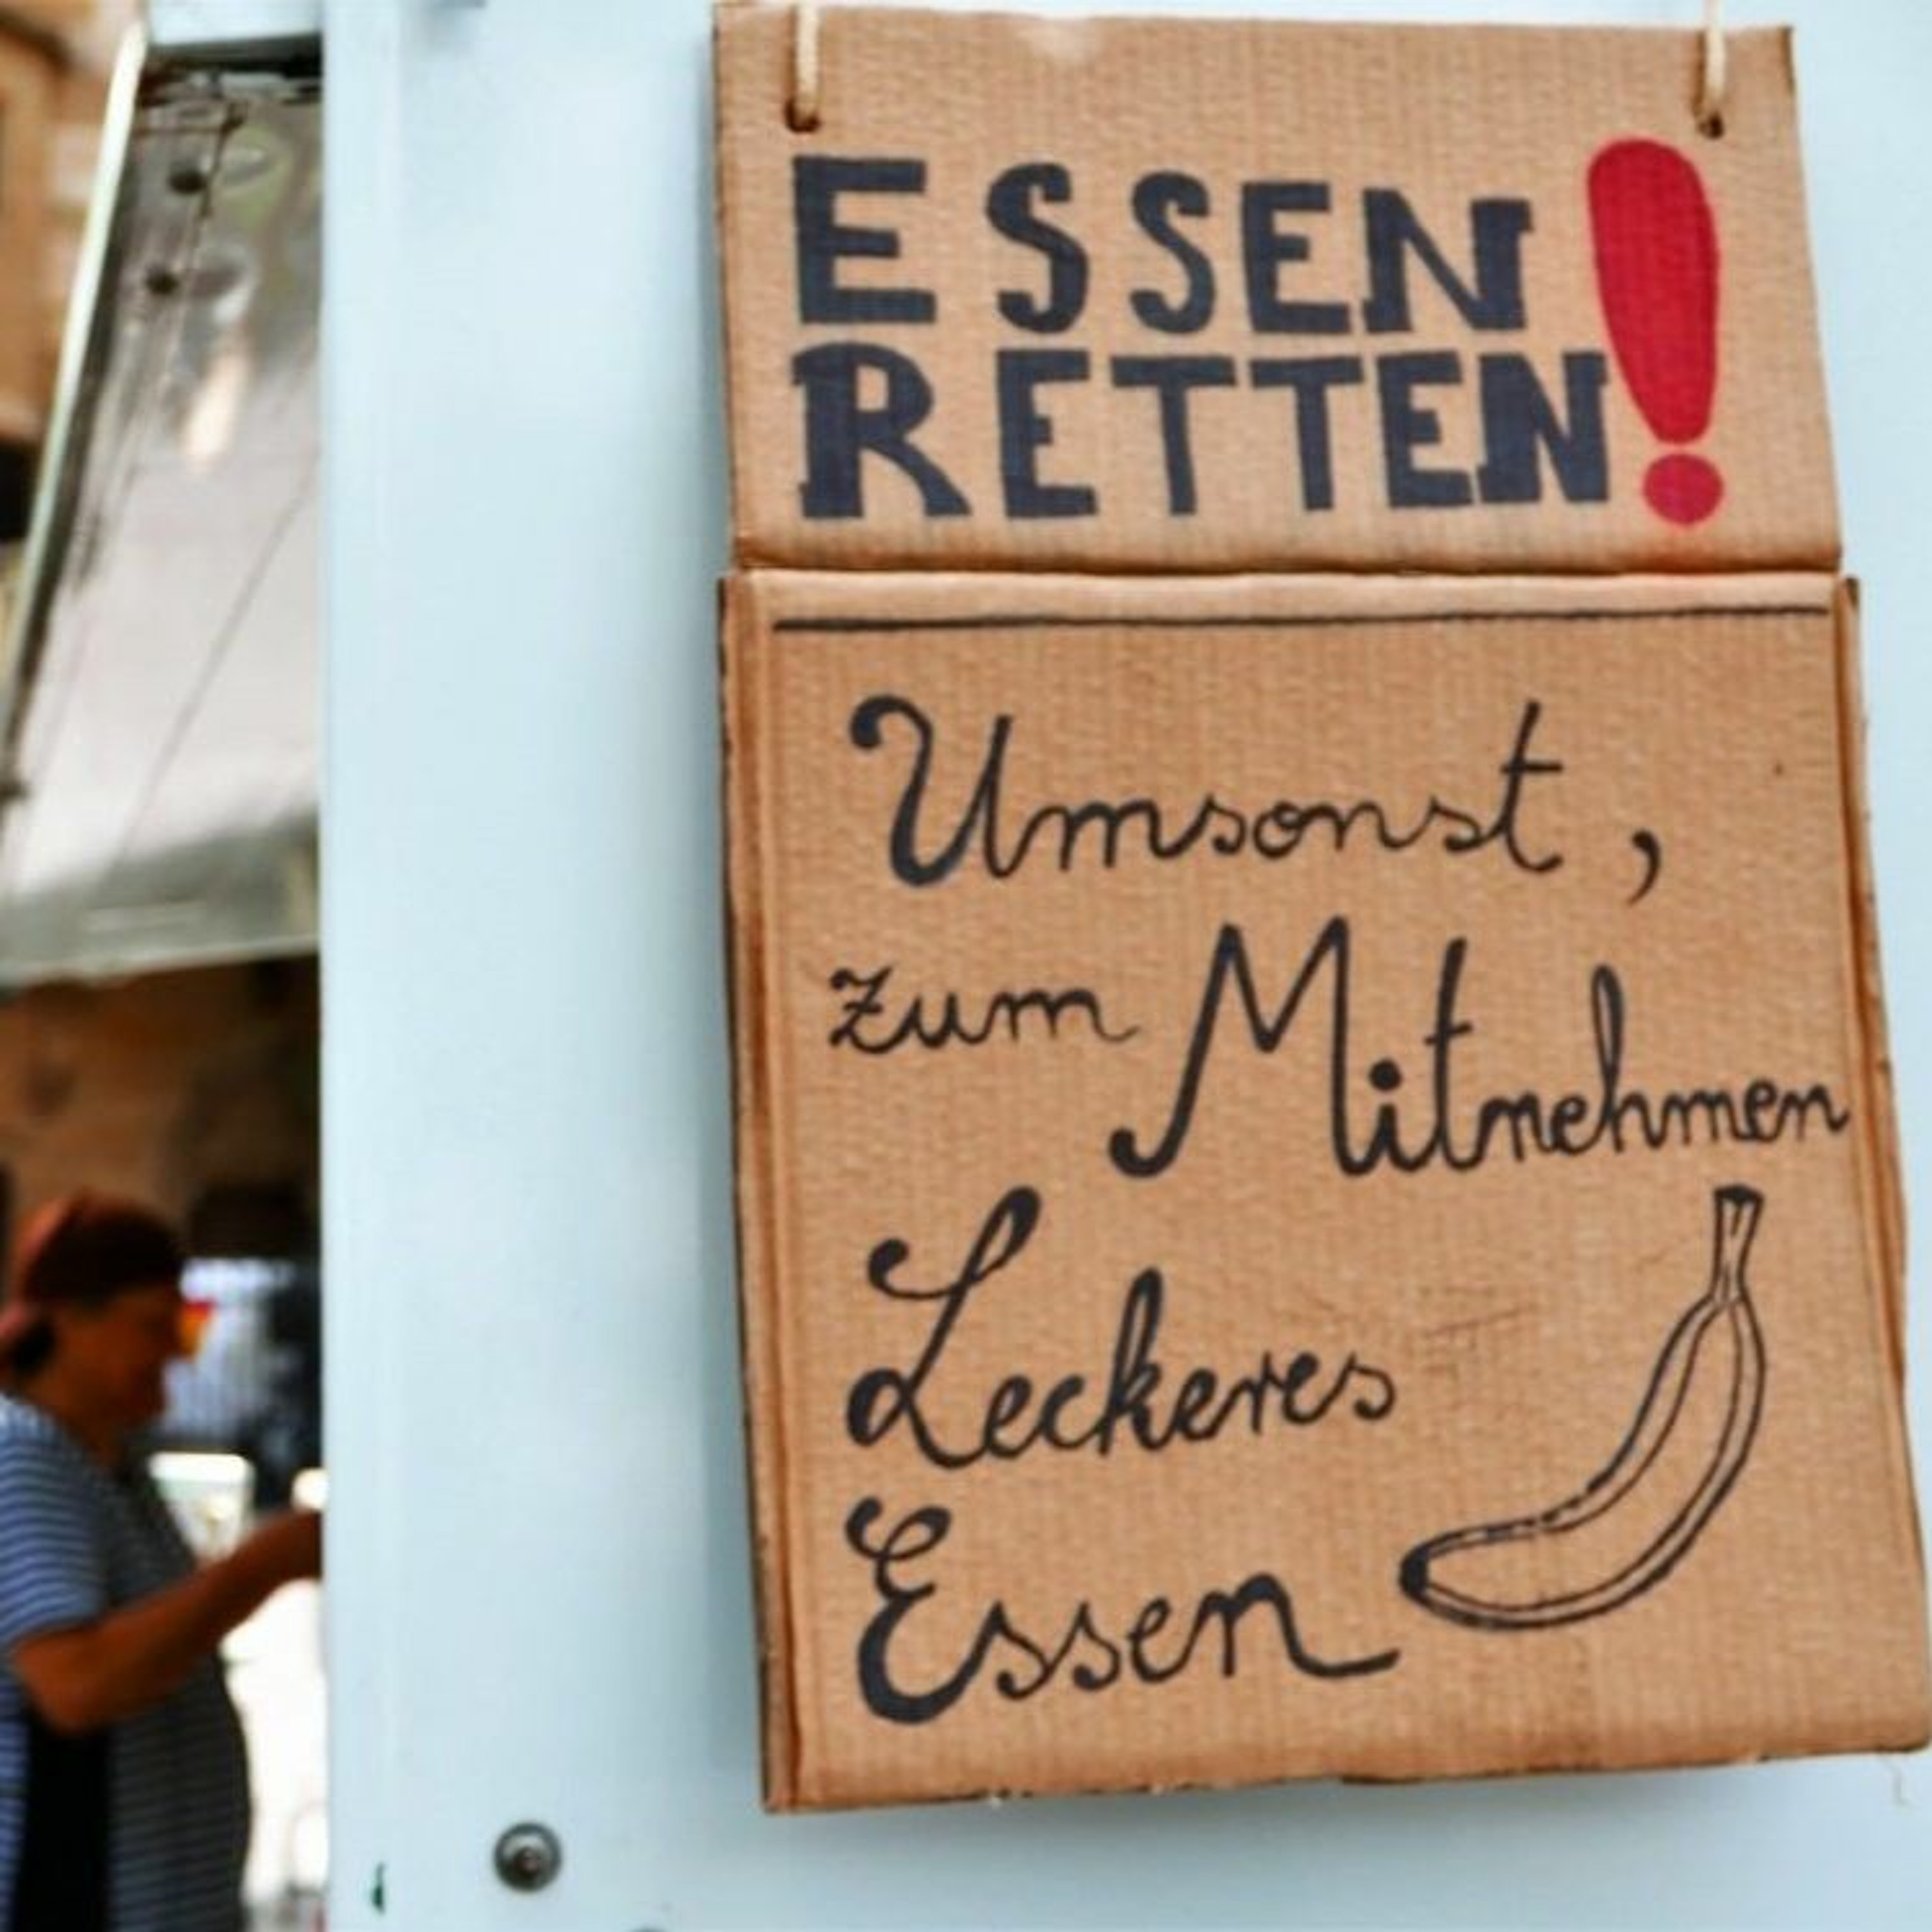 ESSEN
RETTEN!
Umsonst,
zum Mitnehmen
Leckeres
Essen